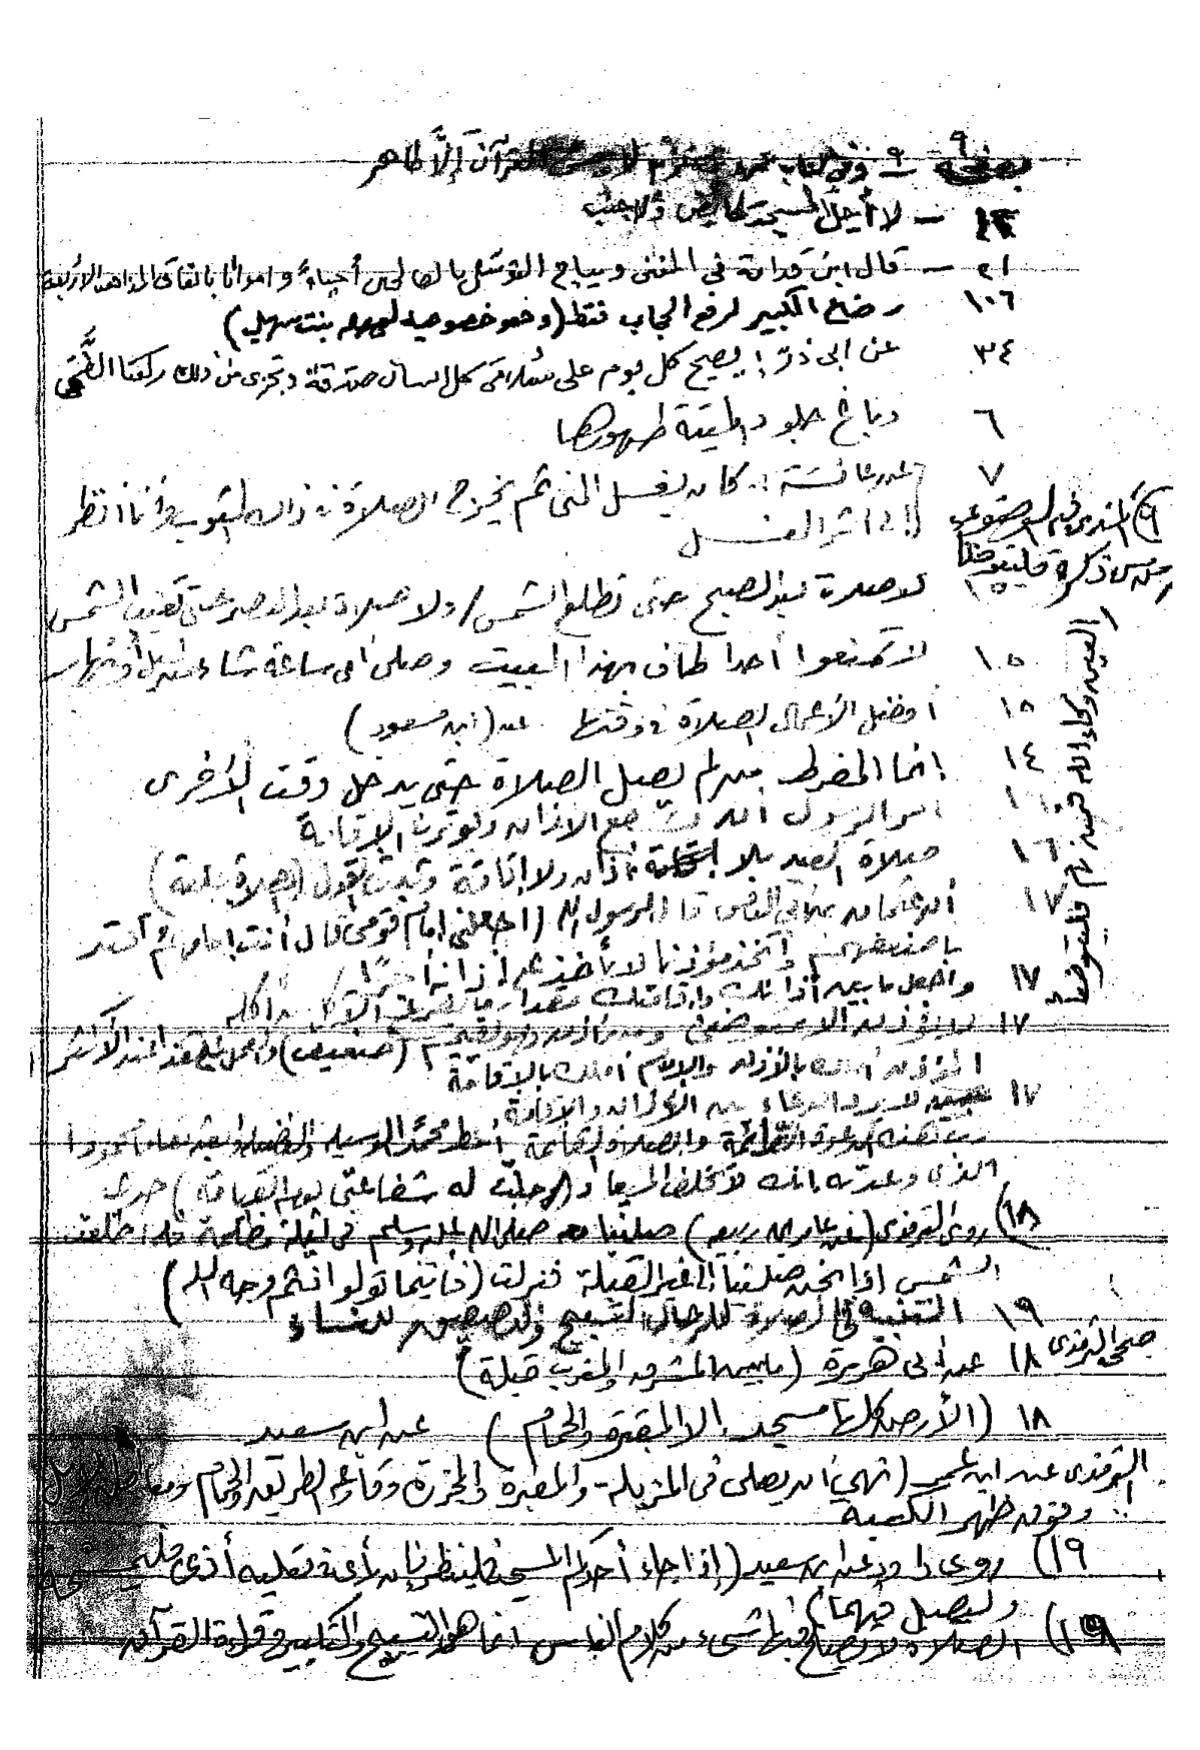 ٩
بصفحة ٩ - وفي كتاب عمرو حزم لا يمس القرآن إلَّا طاهر
١٣ - لا أحل المسجد لحائض ولا جنب
٢١ - قال ابن قدامة في المغنى ويباح التوسل بالصالحين أحياءً وامواتا باتفاق المذاهب الاربعة
١٠٦ رضاع الكبير لرفع الحجاب فقط (وهو خصوصية لسهلة بنت سهيل)
٣٤ عن ابى ذرّ: يصبح كل يوم على سُلامى كل انسان صدقة وتجزى من ذلك ركعتا الضُّحَى
٦ دباغ جلود الميتة طهورها
٧ عن عائشة: كان يغسل المنى ثم يخرج الى الصلاة فى ذلك الثوب وأنا أنظر
إلى أثر الغسل
٩) من مس ذكره فليتوضأ
١٥ لا صلاة بعد الصبح حتى تطلع الشمس / ولا صلاة بعد العصر حتى تغيب الشمس
١٥ لا تمنعوا أحدا طاف بهذا البيت وصلى أى ساعة شاء ليل أو نهار
١٥ أفضل الأعمال الصلاة فى وقتها عن (ابن مسعود)
العين وكاء السه فمن نام فليتوضأ
١٤ إنما المفرط من لم يصل الصلاة حتى يدخل وقت الأخرى
١٦ امر الرسول أن يشفع الاذان ويوتر الإقامة
١٦ صلاة العيد بلا أذان ولا إقامة
١٧ أن عثمان بن أبي العاص قال للرسول ﷺ (اجعلنى إمام قومى قال أنت إمامهم واقتد
بأضعفهم واتخذ مؤذنا لا يأخذ على أذانه أجرًا)
١٧ واجعل ما بين أذانك وإقامتك مقدار ما يفرغ الآكل من أكله
١٧ لا يؤذن إلا متوضئ ومن أذن فهو يقيم (ضعيف)
المؤذن أملك بالأذان والإمام أملك بالإقامة
١٧ لا يرد الدعاء بين الأذان والإقامة
رب هذه الدعوة التامة والصلاة القائمة أعط محمدًا الوسيلة والفضيلة وابعثه مقاما محمودا
الذى وعدته إنك لا تخلف الميعاد (إلا حلت له شفاعتى يوم القيامة)
١٨) روى الترمذى (عن عامر بن ربيعة) صلينا مع صلى الله عليه وسلم فى ليلة مظلمة فلما طلعت
الشمس اذا نحن صلينا الى غير القبلة فنزلت (فأينما تولوا فثم وجه الله)
١٩ التنبيه في الصلاة للرجال التسبيح والتصفيق للنساء
صححه الترمذى ١٨ عن أبى هريرة (ما بين المشرق والمغرب قبلة)
١٨ (الأرض كلها مسجد إلا المقبرة والحمام) عن ابى سعيد
الترمذى عن ابن عمر (نهي أن يصلى فى المزبلة والمقبرة والمجزرة وقارعة الطريق والحمام ومعاطن الإبل
وفوق ظهر الكعبة
١٩) روى داود عن ابى سعيد (إذا جاء أحدكم المسجد فلينظر فإن رأى فى نعليه أذى فليمسحه
وليصل فيهما)
١٩) الصلاة لا يصلح فيها شيء من كلام الناس انما هو التسبيح والتكبير وقراءة القرآن